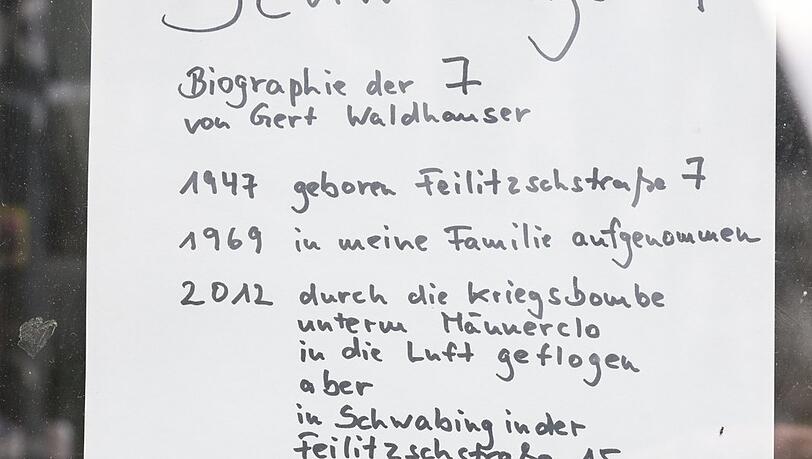 Biographie der 7
von Gert Waldhauser
1947 geboren Feilitzschstraße 7
1969 in meine Familie aufgenommen
2012 durch die Kriegsbombe
unterm Männerclo
in die Luft geflogen
aber
in Schwabing in der
Feilitzschstraße 15